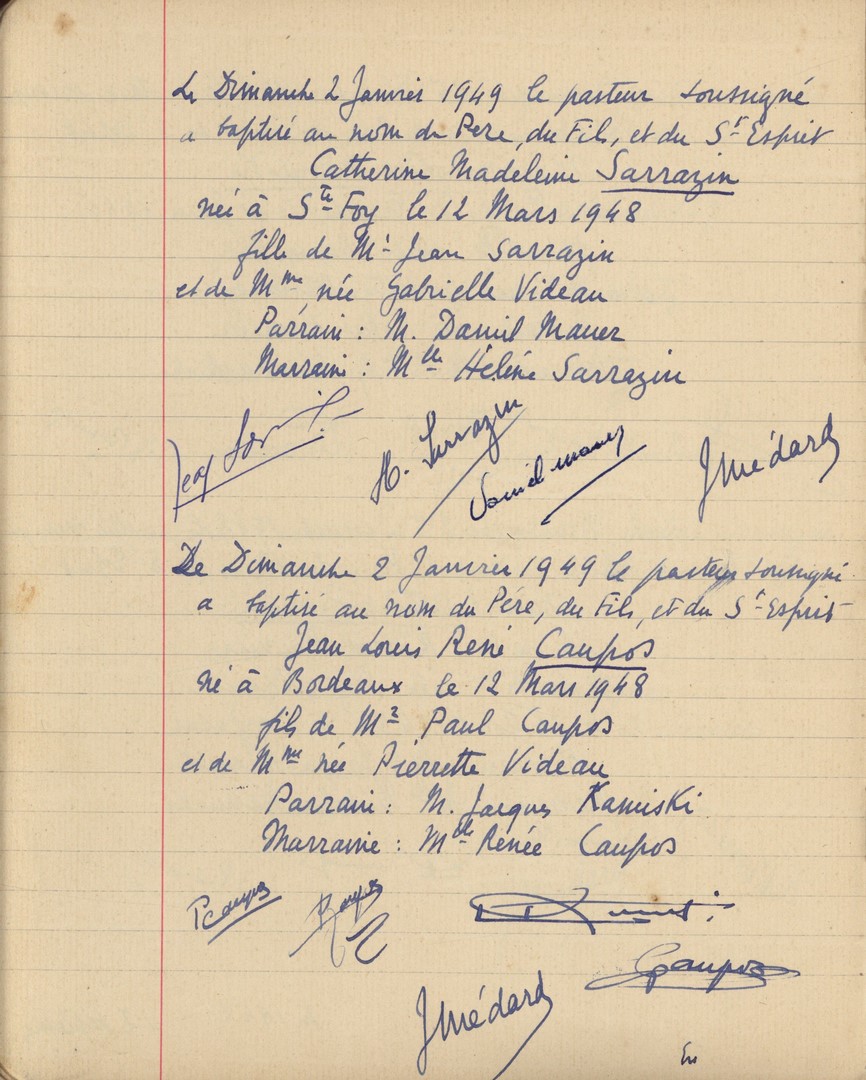 Le Dimanche 2 Janvier 1949 le pasteur soussigné
a baptisé au nom du Père, du Fils, et du St Esprit
Catherine Madeleine Sarrazin
née à Ste Foy le 12 Mars 1948
fille de Mr Jean Sarrazin
et de Mme née Gabrielle Videau
Parrain : M. Daniel Mauer
Marraine : Mlle Hélène Sarrazin
H. Sarrazin
Daniel Mauer
J Médard
Le Dimanche 2 Janvier 1949 le pasteur soussigné
a baptisé au nom du Père, du Fils, et du St Esprit
Jean Louis René Caupos
né à Bordeaux le 12 Mars 1948
fils de Mr Paul Caupos
et de Mme née Pierrette Videau
Parrain : M. Jacques Kamiski
Marraine : Mlle Renée Caupos
P Caupos
R Caupos
Caupos
J Médard